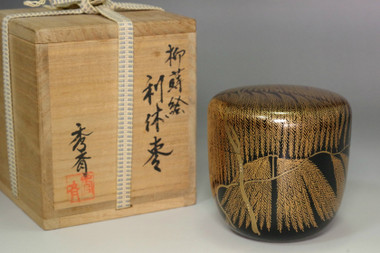 柳蒔絵
利休棗
秀斉